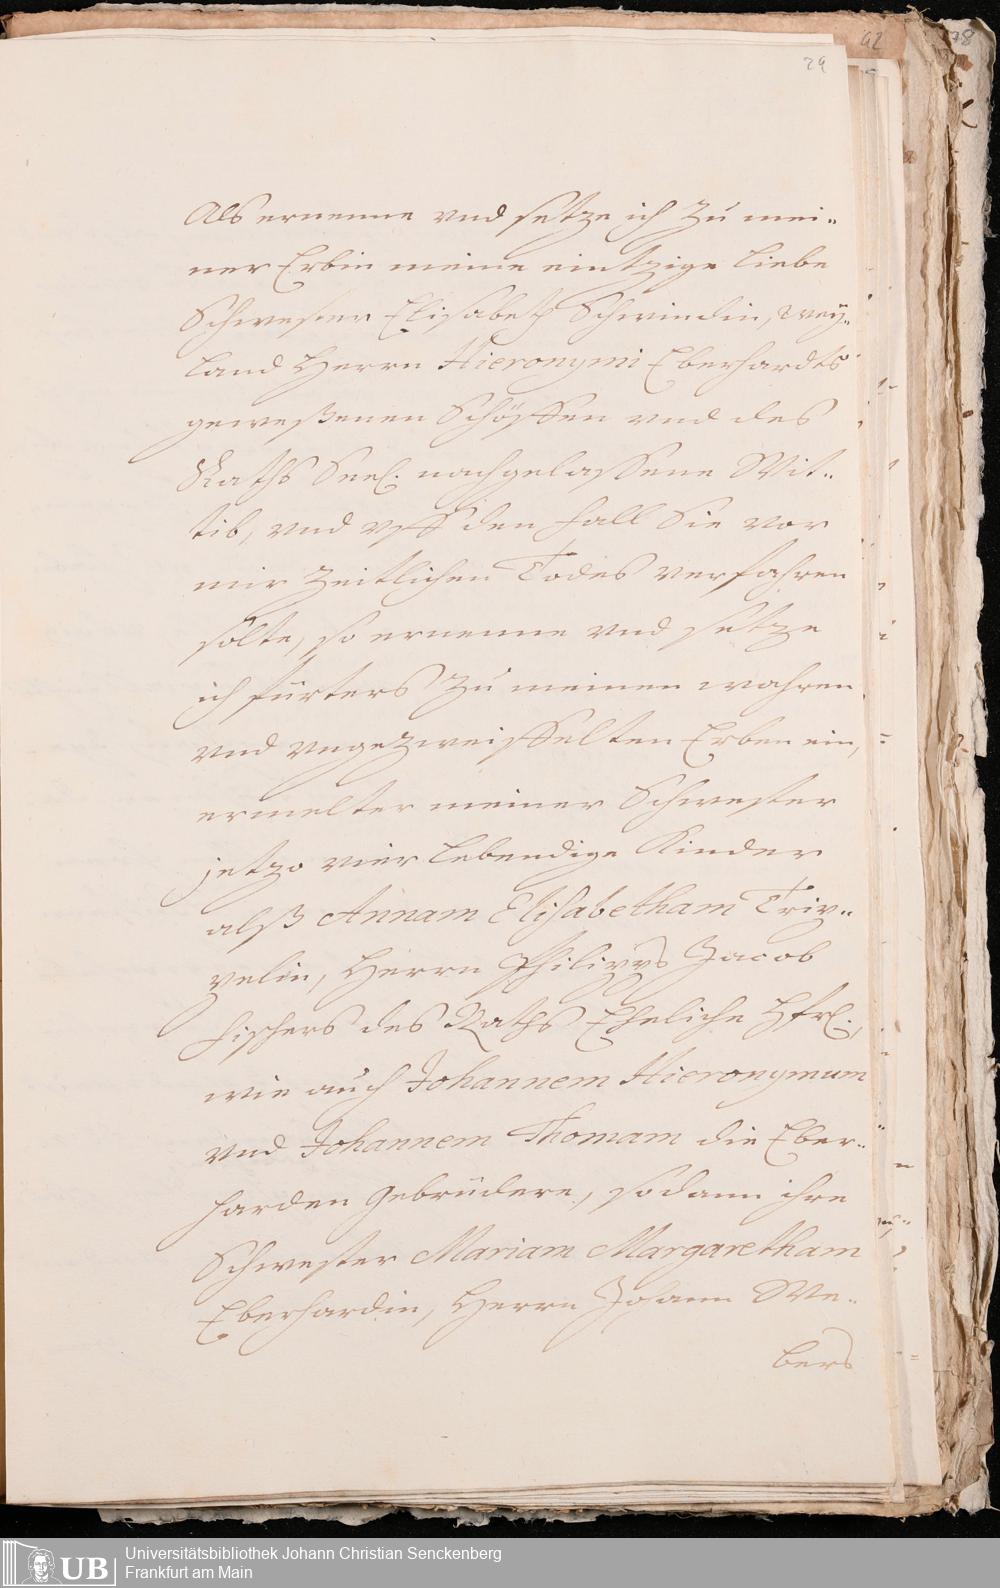 92
78
29
Als ernenne vnd setze ich zu mei-
ner Erbin meine eintzige liebe
Schwester Elisabeth Schwindin, wey-
land Herrn Hieronymi Eberhardts
geweßenen Schöffen vnd des
Raths Seel. nachgelassene Wit-
tib, vnd vff den fall Sie vor
mir zeitlichen Todes verfahren
solte, so ernenne vnd setze
ich fürters zu meinen wahren
vnd vngezweiffelten Erben ein,
ermelter meiner Schwester
jetzo vier lebendige Kinder
alß Annam Elisabetham
Herrn Philipps Jacob
Fischers des Raths Eheliche Hfrl.,
wie auch Johannem Hieronymum
vnd Johannem Thomam die Eber-
harden Gebrüdere, sodann ihre
Schwester Mariam Margaretham
Eberhardin, Herrn Johann We-
bers
UB
Universitätsbibliothek Johann Christian Senckenberg
Frankfurt am Main